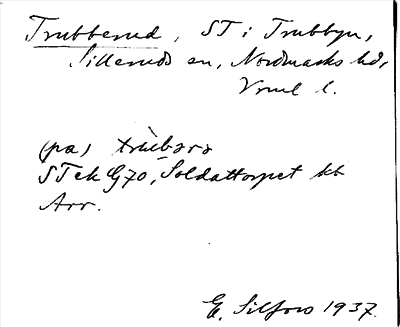 Trubberud, ST i Trubbyn,
Silleruds sn, Nordmarks hd,
Vrml l.
(på) trùbərə
STek G70, Soldattorpet kb
Arr.
E. Silfors 1937.